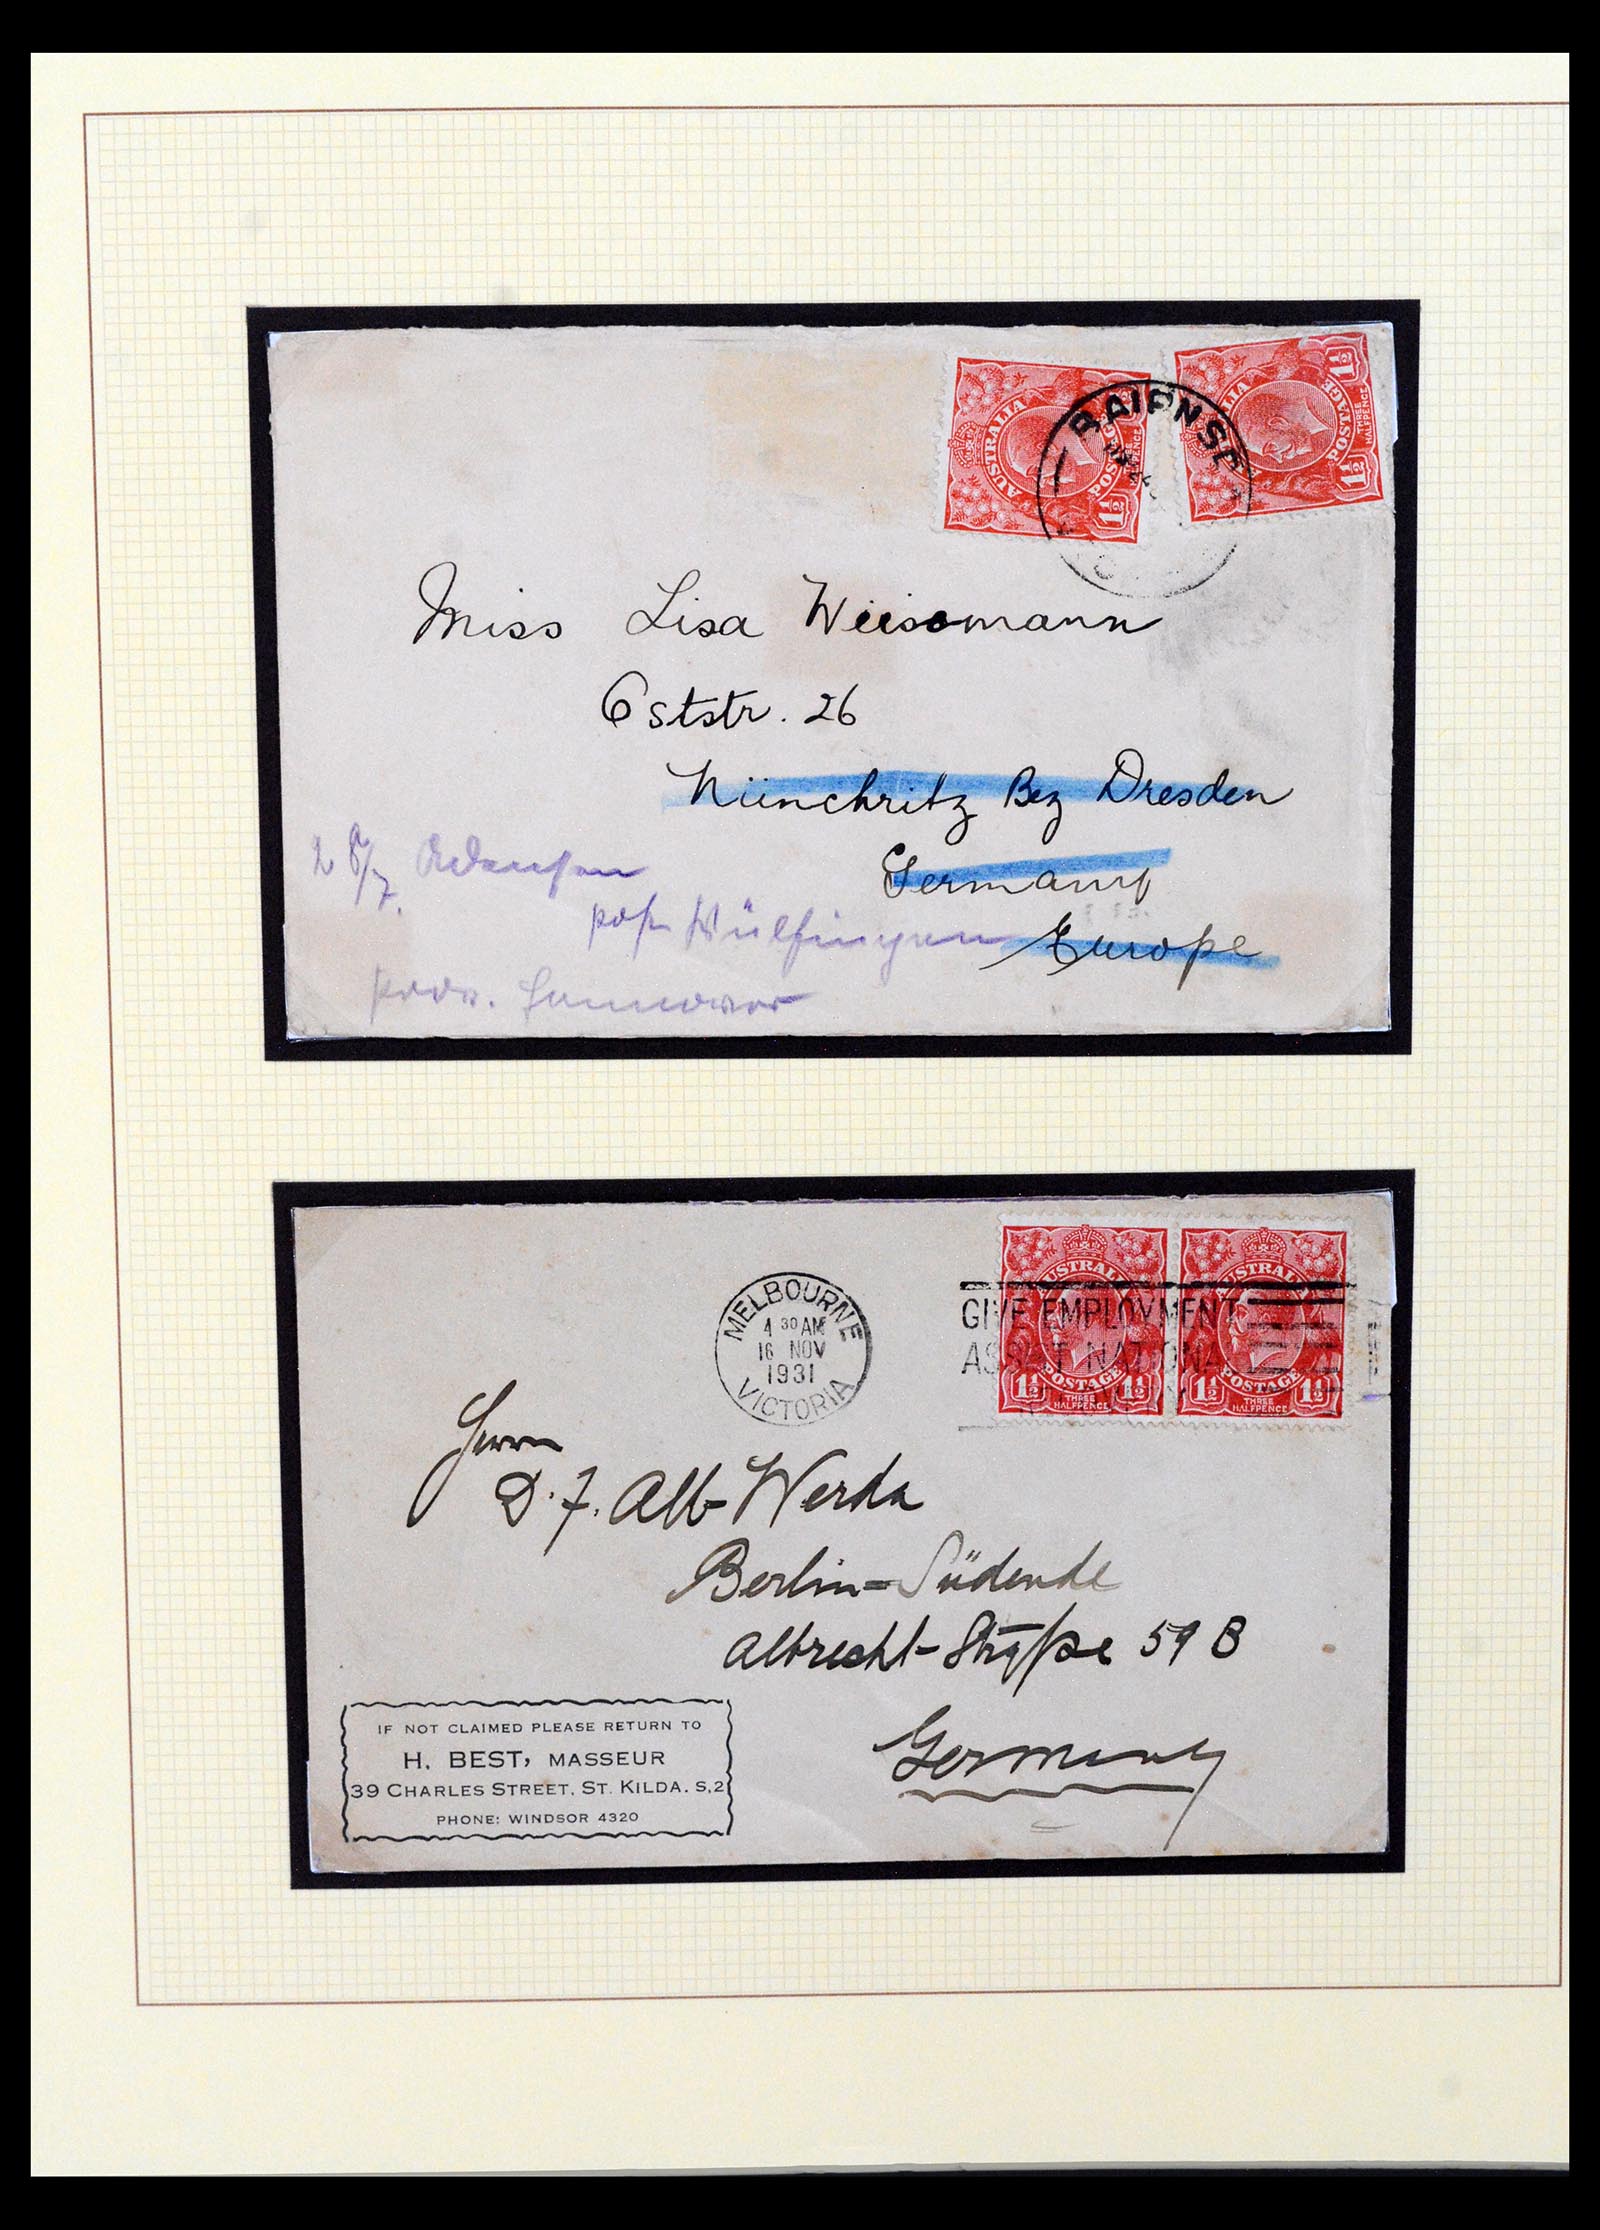 AUSTRALIA
POSTAGE
1½ 1½
HALFPENCE
POSTAGE
1½ 1½
THREE
HALFPENCE
Miss Lisa Weissmann
Oststr. 26
Nünchritz Bez Dresden
Germany
Europe
post Wülfingen
prov. Hannover
MELBOURNE
4 30 AM
16 NOV
1931
VICTORIA
GIVE EMPLOYMENT
AUSTRALIA
POSTAGE
1½ 1½
THREE
HALFPENCE
AUSTRALIA
POSTAGE
1½ 1½
THREE
HALFPENCE
Herrn
D. F. Alb-Werda
Berlin=Südende
Albrecht-Straße 59 B
Germany
IF NOT CLAIMED PLEASE RETURN TO
H. BEST, MASSEUR
39 CHARLES STREET, ST. KILDA. S.2
PHONE: WINDSOR 4320